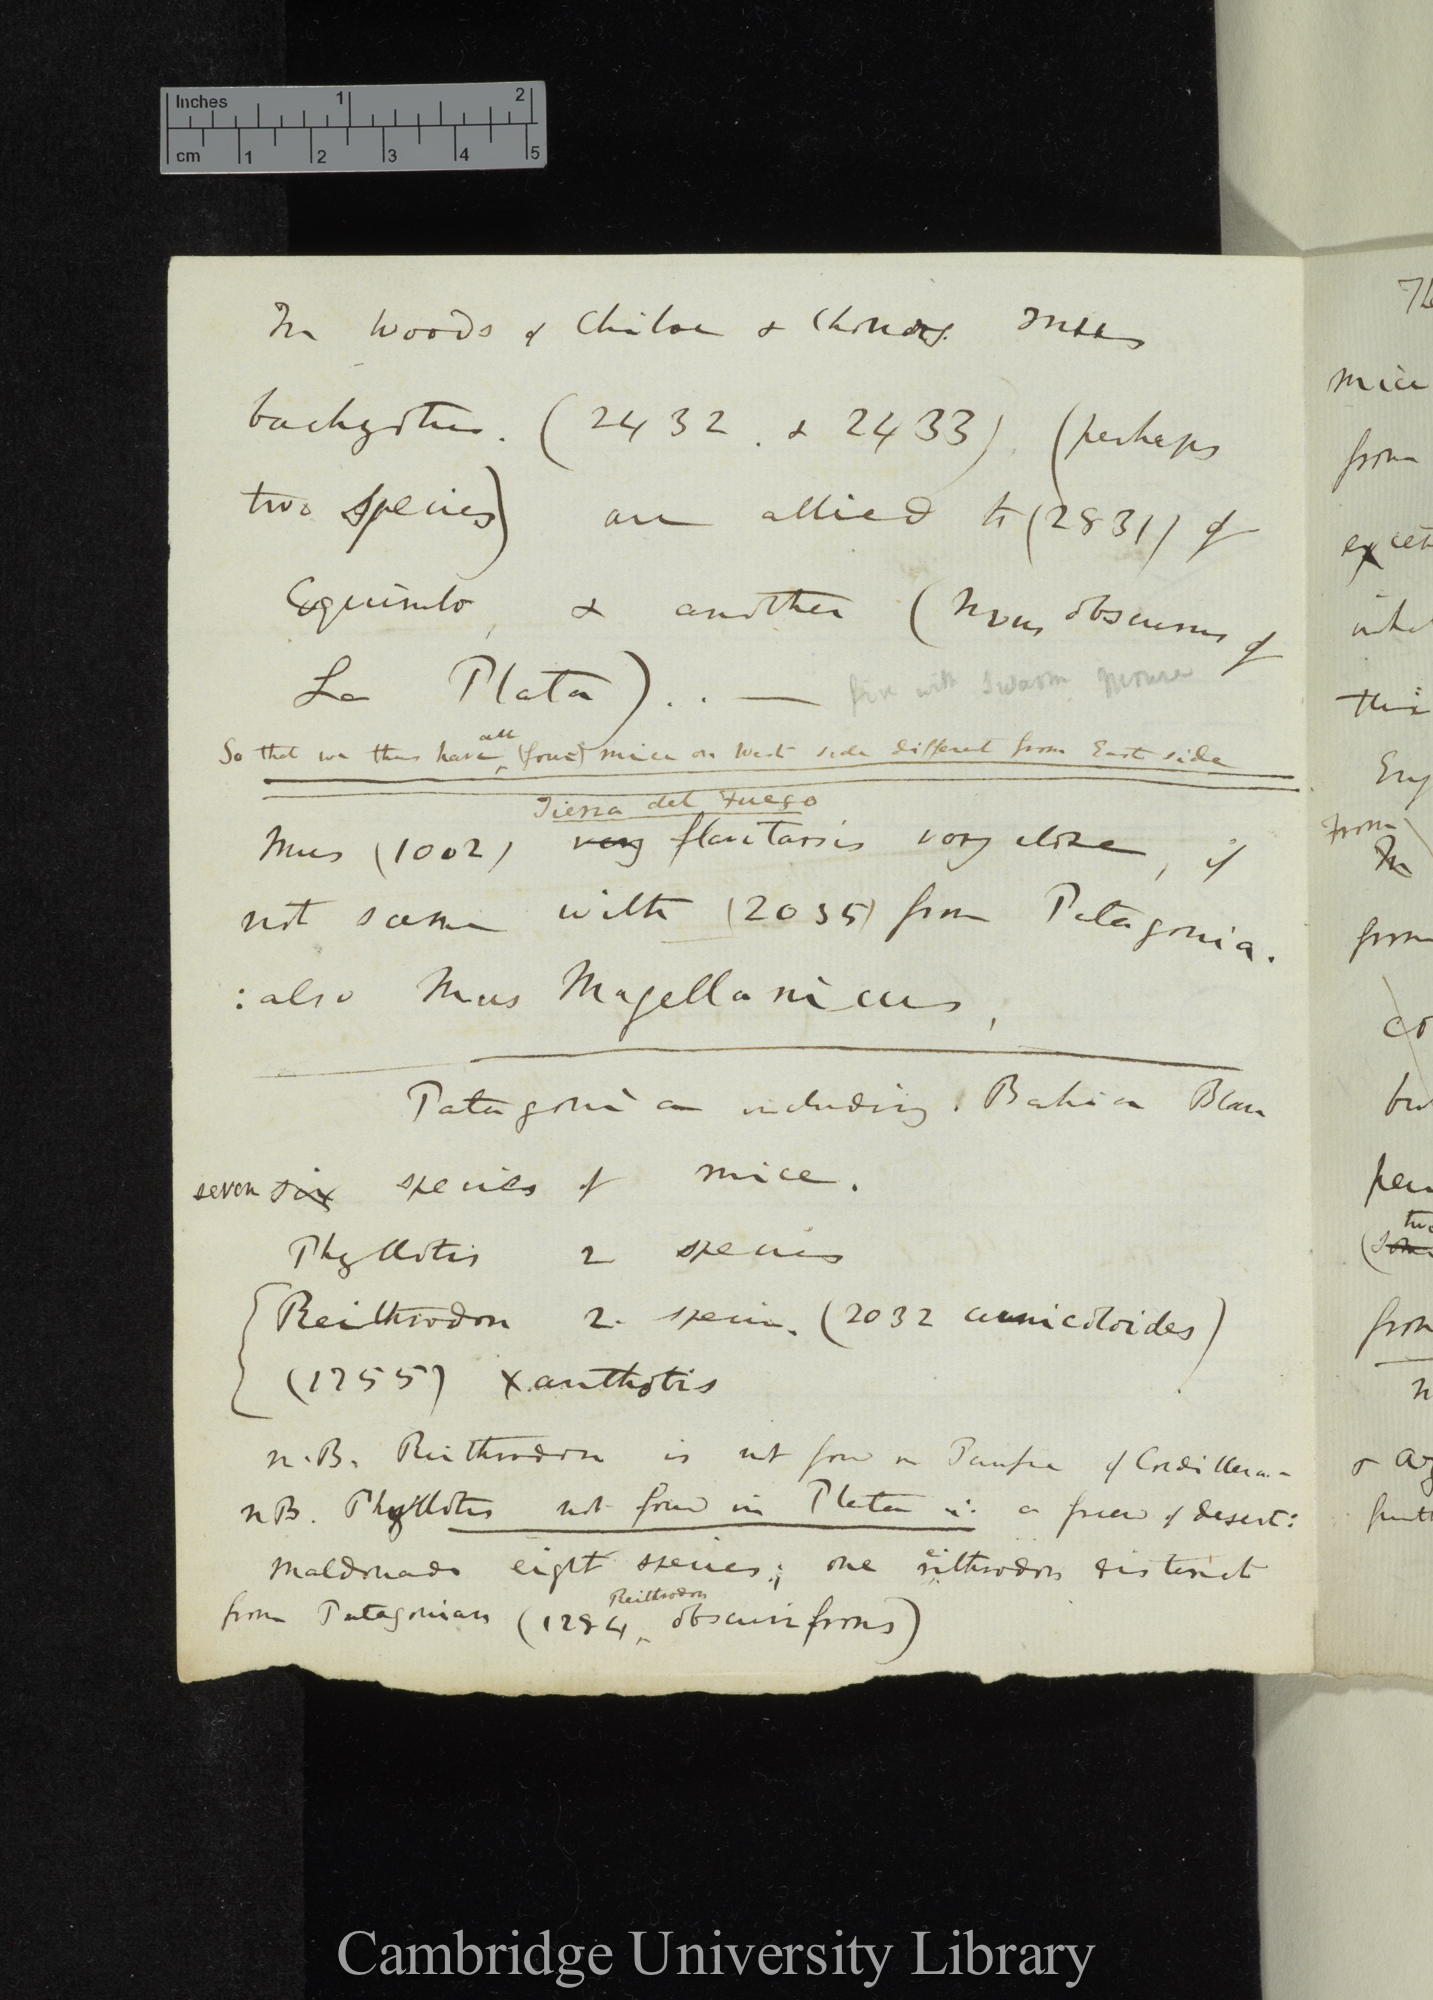 Inches 1 2
cm 1 2 3 4 5
In Woods of Chiloe & Chonos. Mus
brachyotis. (2432. & 2433). (perhaps
two species) are allied to (2831) of
Coquimbo, & another (Mus obscurus of
La Plata)..— five with mouse
So that we thus have all (four) mice on West side different from East side
Tierra del Fuego
Mus (1002) very flavitarsis very close, if
not same with (2035) from Patagonia.
: also Mus Magellanicus,
Patagonia including Bahia Blan
seven six species of mice.
Phyllotis 2 species
Reithrodon 2. specie. (2032 cuniculoides)
(1255) xanthotis
n.B. Reithrodon is not foun in Pampa of Cordillera.-
nB. Phyllotis not foun in Plata is a of desert:
Maldonado eight species; one reithrodon distinct
from Patagonian (1284 Reithrodon obscurifrons)
mice
from
from
from
from
Cambridge University Library